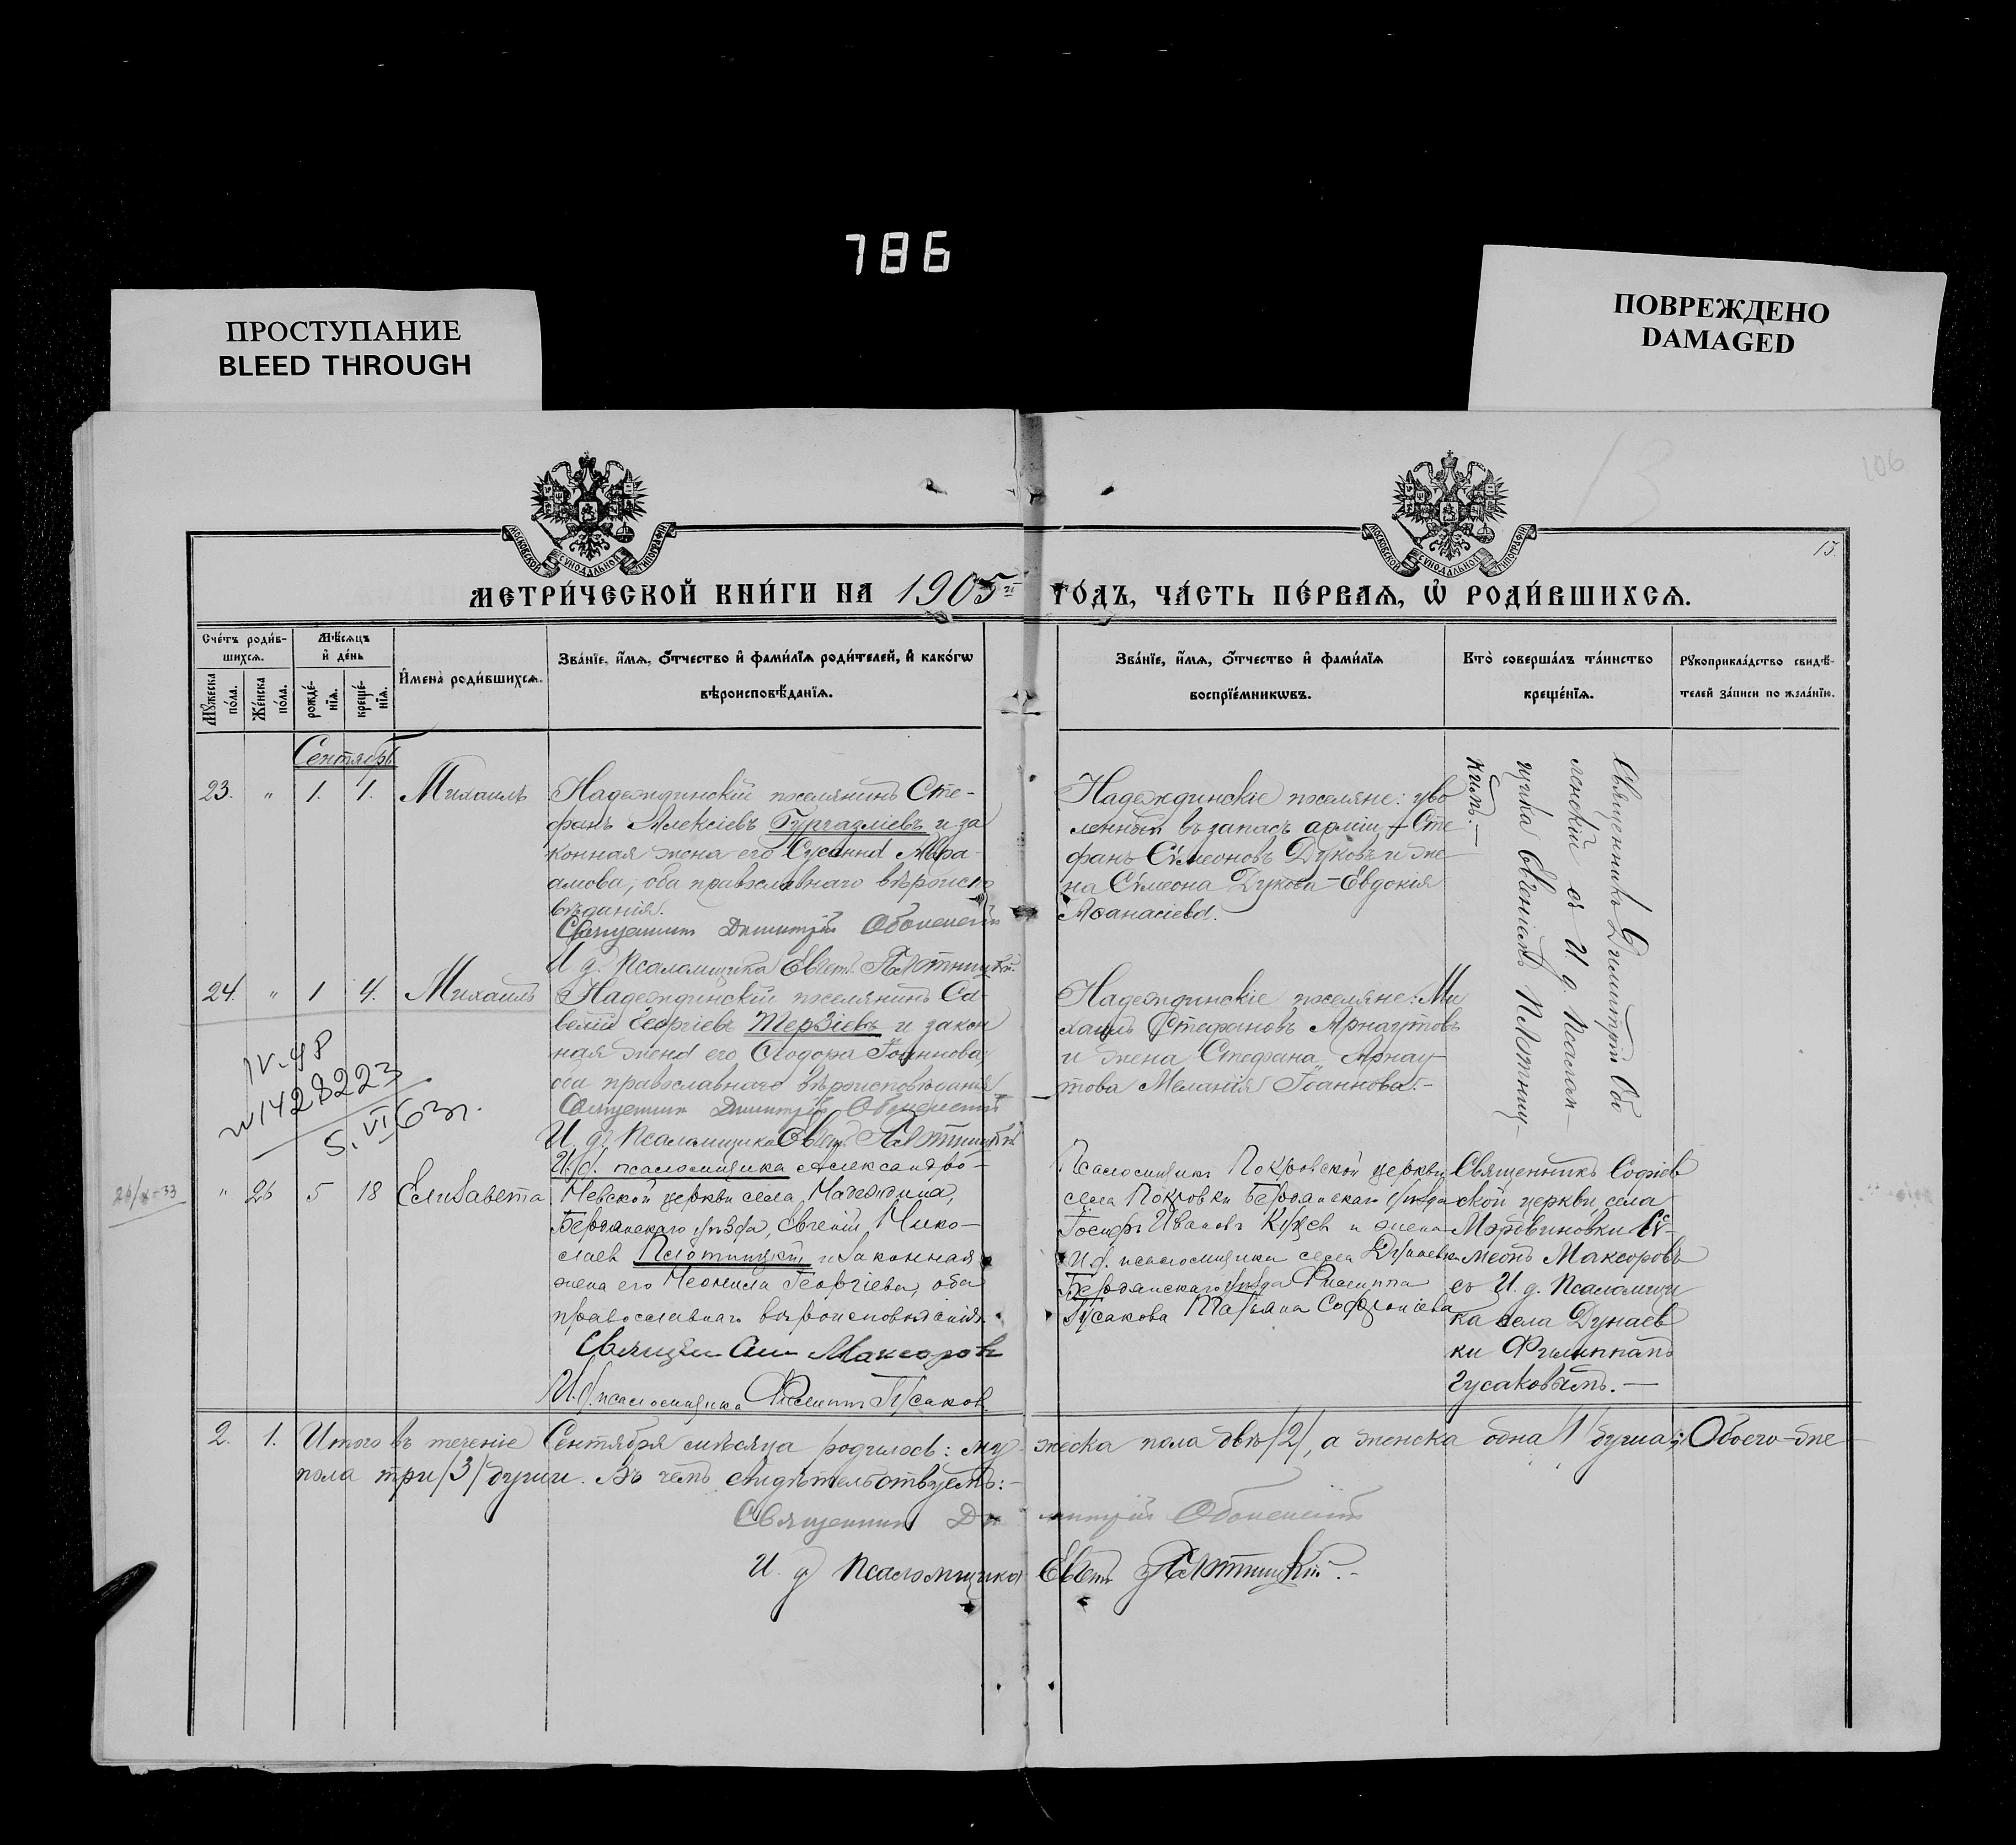 786
ПРОСТУПАНИЕ
BLEED THROUGH
ПОВРЕЖДЕНО
DAMAGED
106
13
15.
МОСКОВСКОЙ СѴНОДАЛЬНОЙ ТИПОГРАФІИ
МОСКОВСКОЙ СѴНОДАЛЬНОЙ ТИПОГРАФІИ
МЕТРИ́ЧЕСКОЙ КНИ́ГИ НА 1905й ГО́ДЪ, ЧА́СТЬ ПЕ́РВАѦ, Ѡ҆ РОДИ́ВШИХСѦ.
Сче́тъ роди́в-
шихсѧ.
Мꙋ́жеска по́ла.
Же́нска по́ла.
Мѣ́сѧцъ
и҆ де́нь
рожде́-
нїѧ.
креще́-
нїѧ.
И҆мена̀ роди́вшихсѧ.
Зва́нїе, и҆́мѧ, ѻ҆́тчество и҆ фами́лїѧ роди́телей, и҆ како́гѡ
вѣроисповѣ́данїѧ.
Зва́нїе, и҆́мѧ, ѻ҆́тчество и҆ фами́лїѧ
воспрїе́мникѡвъ.
Кто̀ соверша́лъ та́инство
креще́нїѧ.
Рꙋкоприкла́дство свидѣ́-
телей за́писи по жела́нїю.
Сентябрь
23. " 1. 1. Михаилъ
Надеждинскій поселянинъ Сте-
фанъ Алексіевъ Гургазліевъ и за
конная жена его Сусанна Авра-
амова, оба православнаго вѣроиспо
вѣданія.
Священникъ Димитрій
И. д. Псаломщика Евген. Плотницкій.
Надеждинскіе поселяне: уво
ленный въ запасъ арміи – Сте
фанъ Сѵмеоновъ Дуковъ и же
на Сѵмеона Дукова – Евдокія
Аѳанасіева.
Священникъ Димитрій Обо
ленскій съ И. д. Псалом-
щика Евгеніемъ Плотниц-
кимъ.–
24. " 1 4. Михаилъ
Надеждинскій поселянинъ Са-
велій Георгіевъ Терзіевъ и закон
ная жена его Ѳеодора Іоаннова,
оба православнаго вѣроисповѣданія
Священникъ Димитрій
И. д. Псаломщика Евген. Плотницкій
Надеждинскіе поселяне: Ми
хаилъ Стефановъ Арнаутовъ
и жена Стефана Арнау-
това Меланія Іоаннова.–
IV-ЯР
№1428223
5.VI 63г.
26/X-33
" 26 5 18 Елизавета
И. д. псаломщика Александро-
Невской церкви села Надеждина,
Бердянскаго уѣзда, Евгеній Нико-
лаев Плотницкій и законная
жена его Неонила Георгіева, оба
православнаго вѣроисповѣданія.
Священ. Сим. Максоровъ
И. д. псаломщика Филиппъ Гусаков
Псаломщикъ Покровской церкви
села Покровки Бердянскаго уѣзда
Іосифъ Ивановъ и жена
И. д. псаломщика села Дунаевки
Бердянскаго уѣзда Филиппа
Гусакова Татьяна Софроніева
Священникъ Софіев
ской церкви села
Мордвиновки Сѵ-
меонъ Максоровъ
съ И. д. Псаломщи
ка села Дунаев
ки Филиппомъ
Гусаковымъ.–
2. 1. Итого въ теченіе Сентября мѣсяца родилось: му-жеска пола двѣ /2/, а женска одна /1/ душа; Обоего-же
пола три /3/ души. Въ чемъ свидѣтельствуемъ:–
Священникъ Димитрій
И. д. Псаломщика Евген. Плотницкій.–